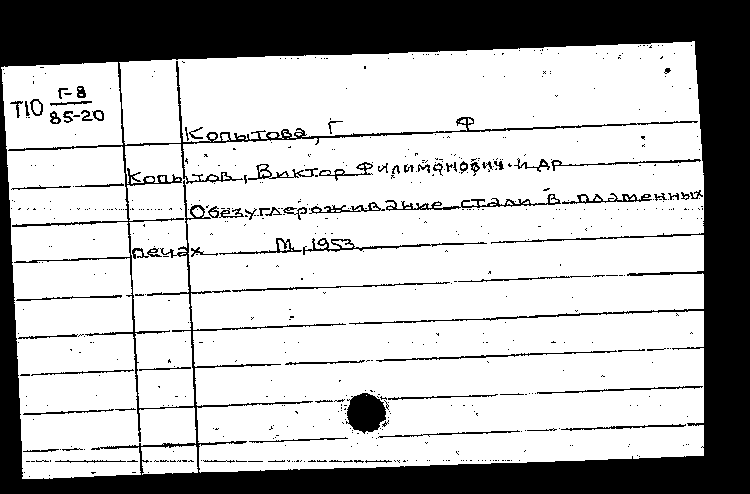 Т10 Г-8
85-20
Копытова, Г Ф
Копытов, Виктор Филимонович и др
Обезуглероживание стали в пламенных
печах М, 1953